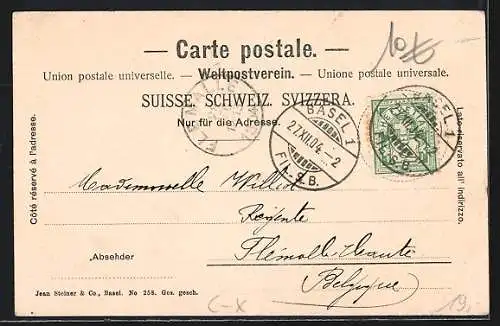 — Carte postale. —
Union postale universelle. — Weltpostverein. — Unione postale universale.
SUISSE. SCHWEIZ. SVIZZERA.
Nur für die Adresse.
BASEL 1
27.XII.04.—2
BASEL 1
Côté réservé à l'adresse.
Lato riservato all' indirizzo.
Mademoiselle
Régente
Flémalle-Haute
(Belgique)
„Absehder
Jean Steiner & Co., Basel. No 258. Ges. gesch.
C-X
19,-